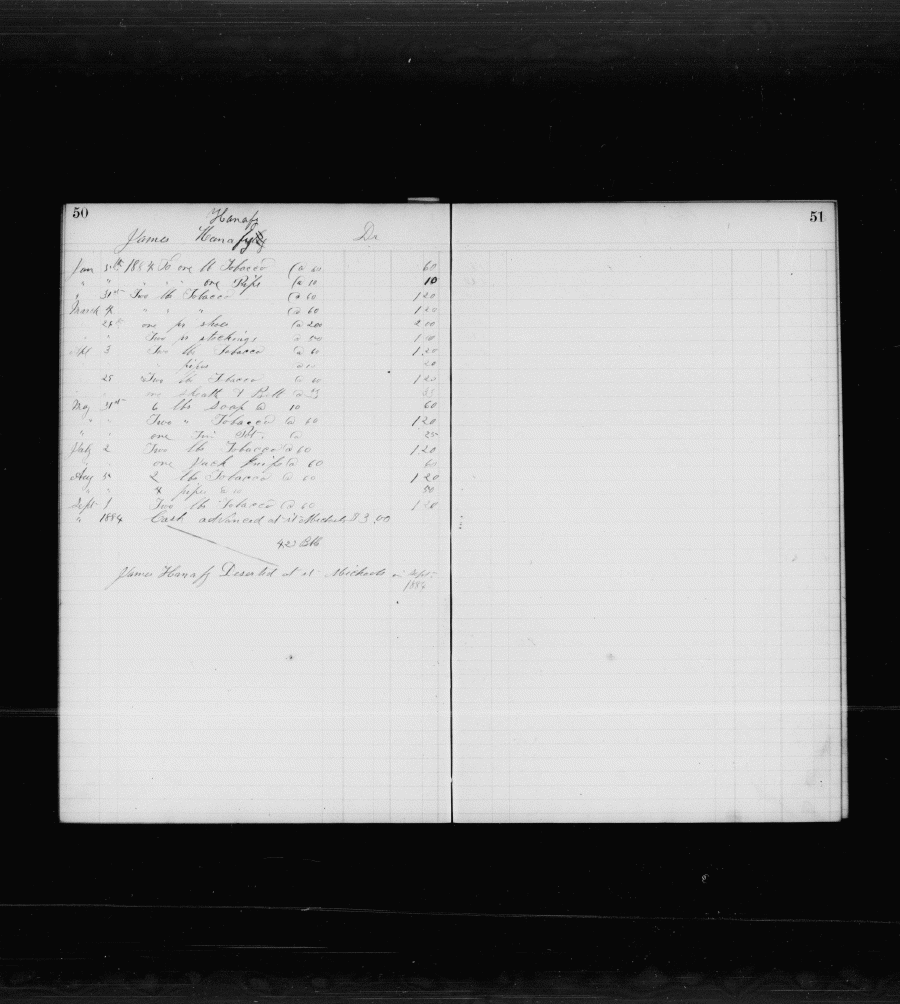 50
Hanafy
James Hanafy Dr
Jan 5th 1884 To one lb Tobacco @ 60 60
" " " " one Pipe @ 10 10
" 31st Two lbs Tobacco @ 60 120
March 4 " " " @ 60 120
25th one pr shoes @ 200 200
" " Two pr stockings @ 50 100
Apl 3 Two lbs Tobacco @ 60 1,20
" pipes 20
25 Two lbs Tobacco @ 60 120
one sheath &
May 31st 6 lbs Soap @ 10 60
" " Two " Tobacco @ 60 120
" " one Tin Pot @ 25
July 2 Two lbs Tobacco @ 60 120
" one Jack Knife @ 60 60
Aug 5 2 lbs Tobacco @ 60 120
" " pipes 50
Sept 1 Two lbs Tobacco @ 60 120
" 1884 Cash advanced at st Michaels $3,00
423 Bbls
James Hanafy Deserted at st Michaels in Sept.
1884
51